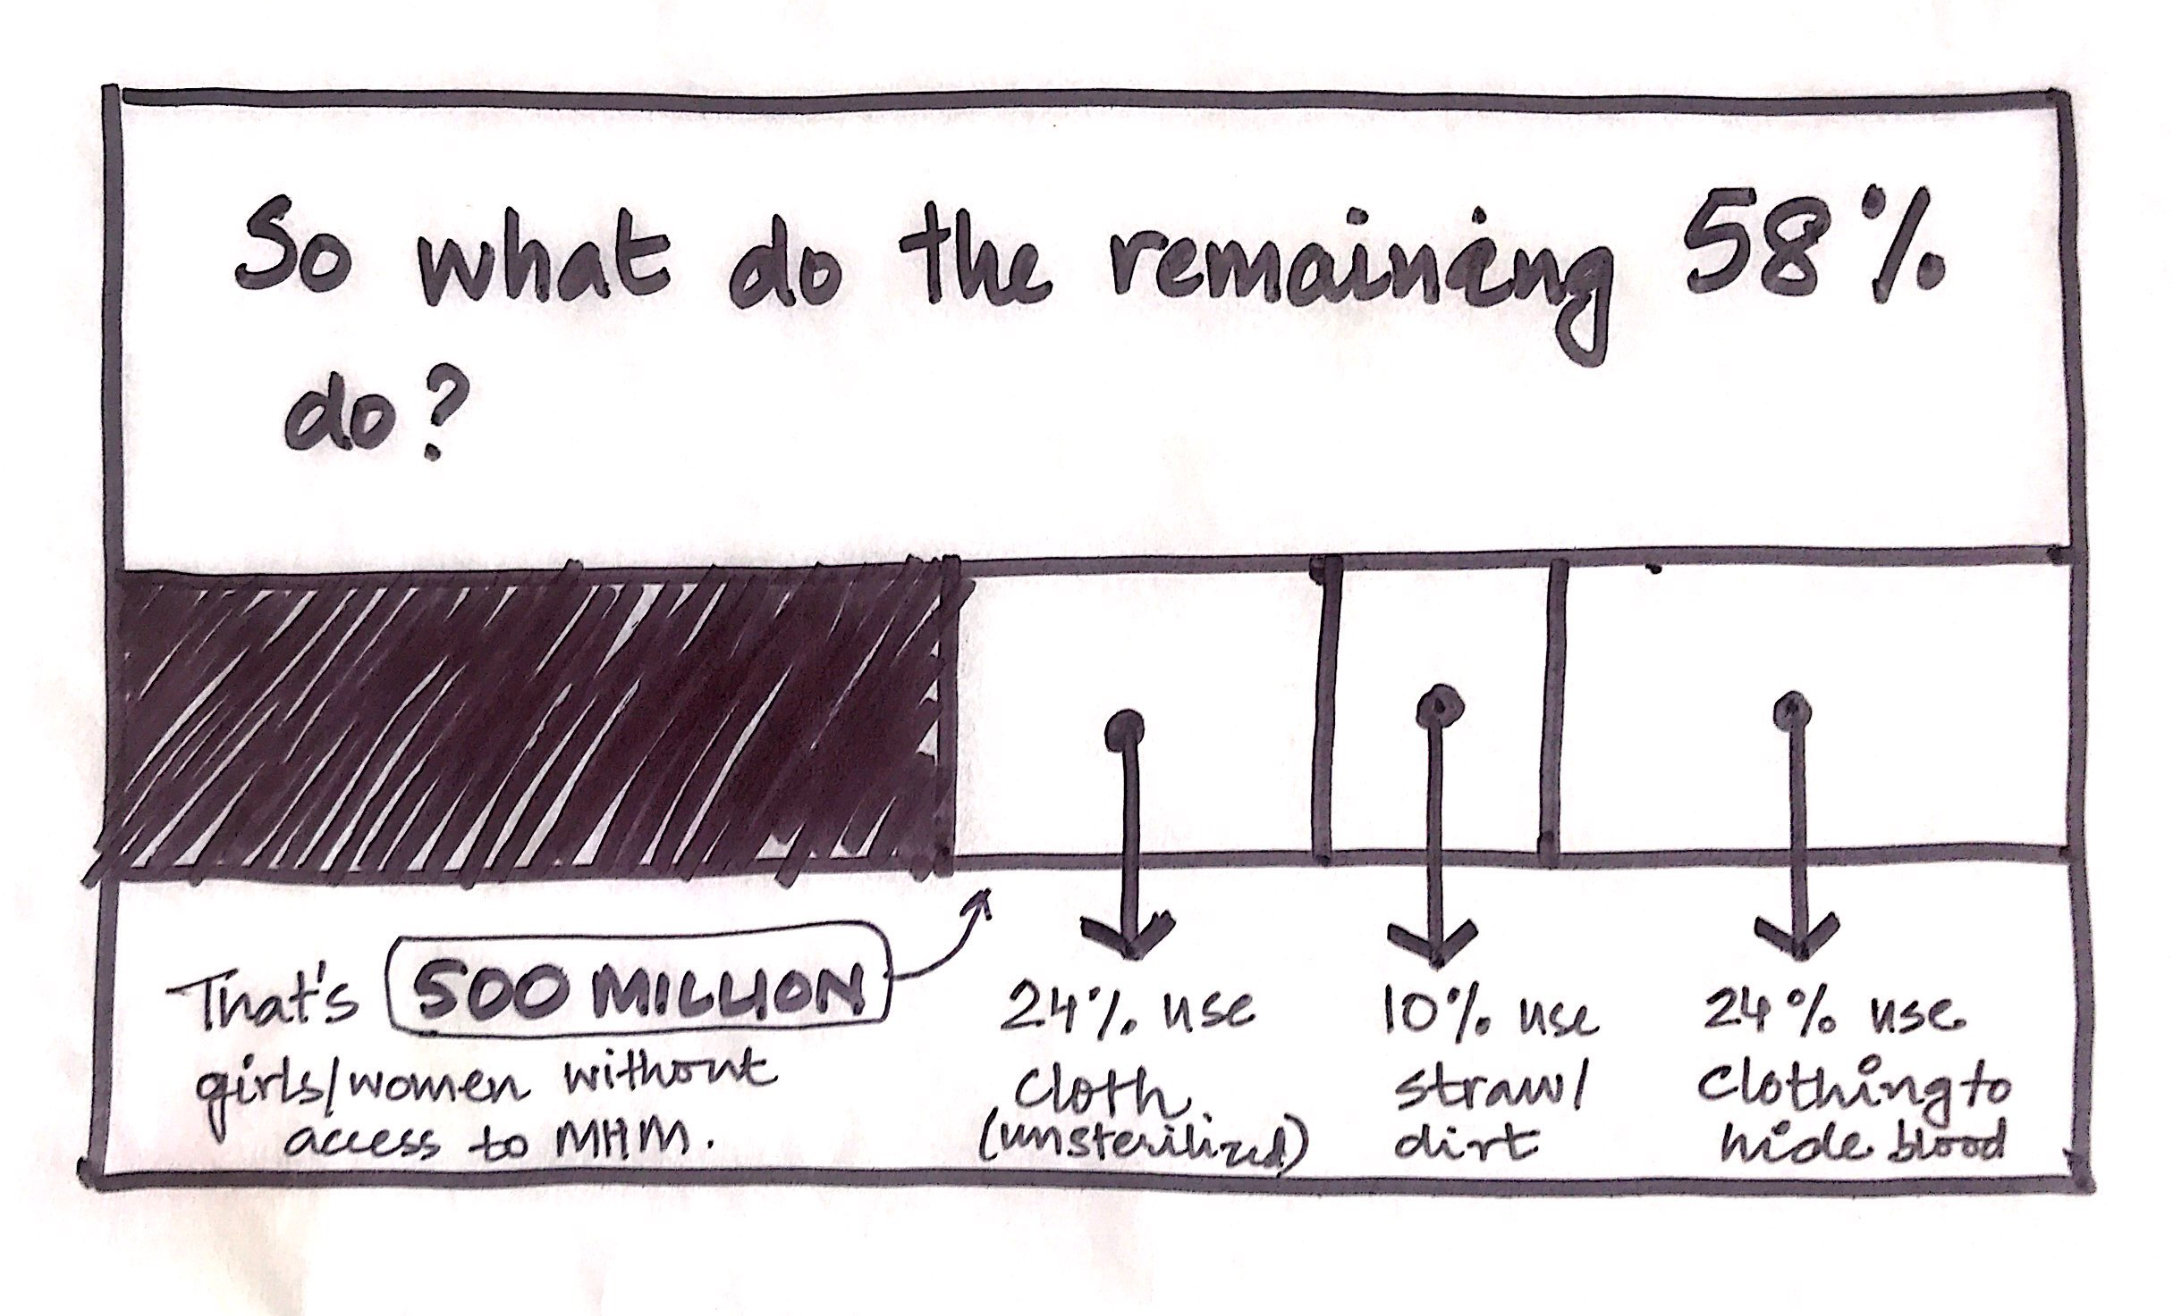 So what do the remaining 58%
do?
That's 500 MILLION
girls/women without
access to MHM.
24% use
cloth
(unsterilized)
10% use
straw/
dirt
24% use
clothing to
hide blood